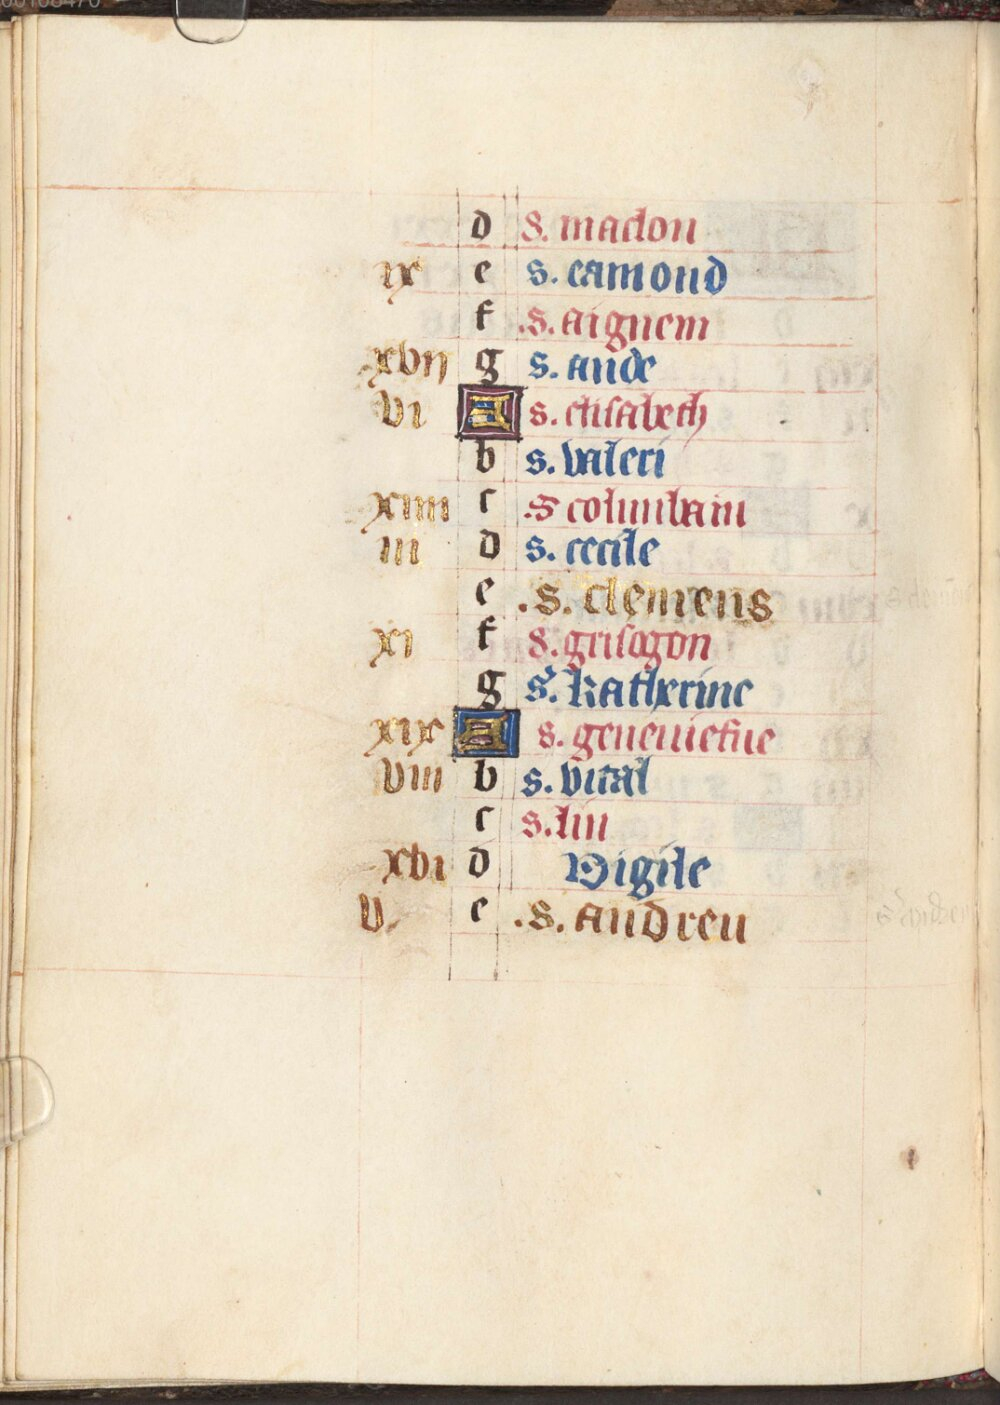 d S. maclou
ix e s. eamond
f .S. aignem
xvii g s. aude
vi A s. elisabeth
b s. valeri
xiiii c .S columbain
iii d s. cecile
e .s. clemens
xi f S. grisogon
g s. katherine
xix A s. geneuiefue
viii b s. vital
c s. lin
xvi d Vigile
v. e .s. andreu